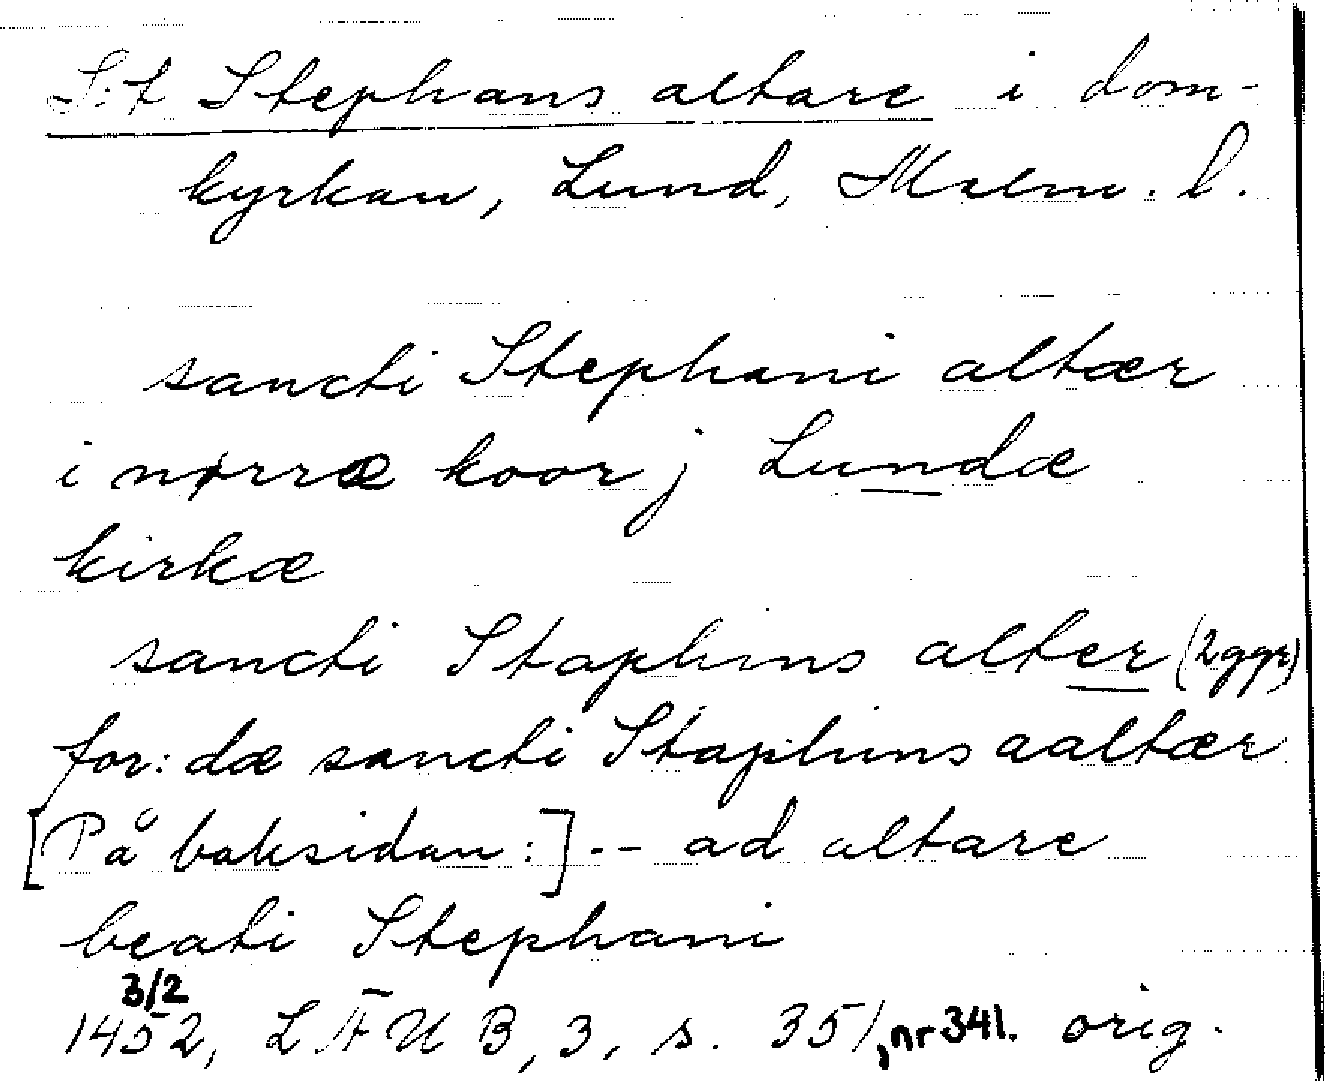 S:t Stephans altare i dom-
kyrkan, Lund, Malm. l.
sancti Stephani altær
i nørræ koor j Lundæ
kirkæ
sancti Staphins alter (2 ggr)
for: dæ sancti Staphins aaltær
[På baksidan:] -- ad altare
beati Stephani
3/2
1452, LÄUB, 3, s. 351, nr 341. orig.